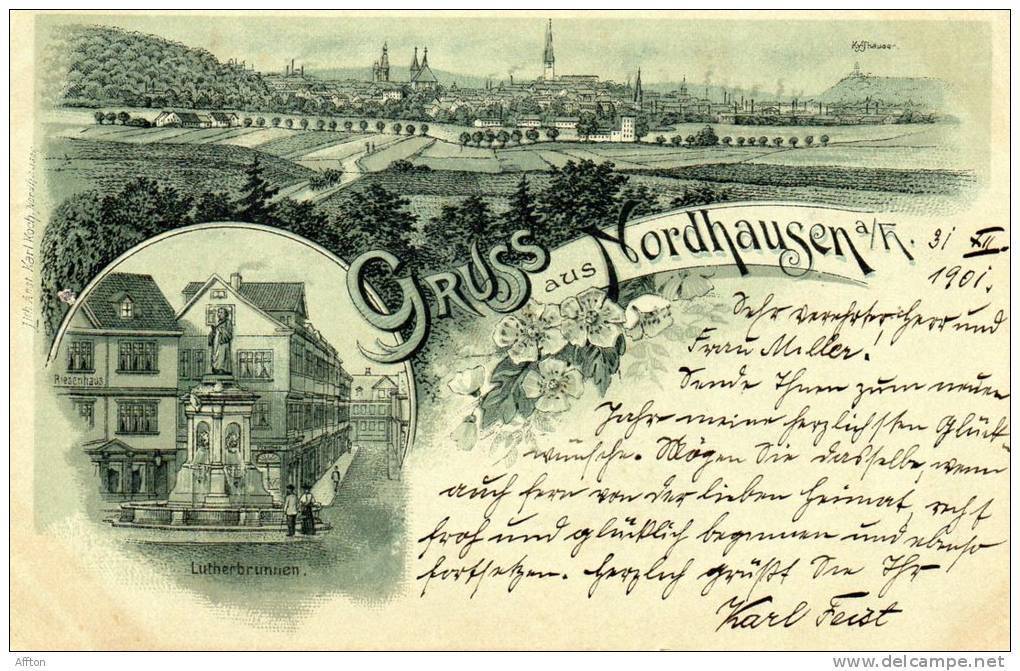 Kyffhäuser.
Lith. Anst. Karl Koch,
Gruss aus Nordhausen a/H.
31 XII.
1901.
Sehr verehrter Herr und
Frau Miller!
Sende Ihnen zum neuen
Jahr meine herzlichsten Glück
wünsche. Mögen Sie dasselbe, wenn
auch fern von der lieben Heimat, recht
froh und glücklich beginnen und ebenso
fortsetzen. Herzlich grüßt Sie Ihr
Karl Feist
Riesenhaus
Lutherbrunnen.
Affton
www.delcampe.net